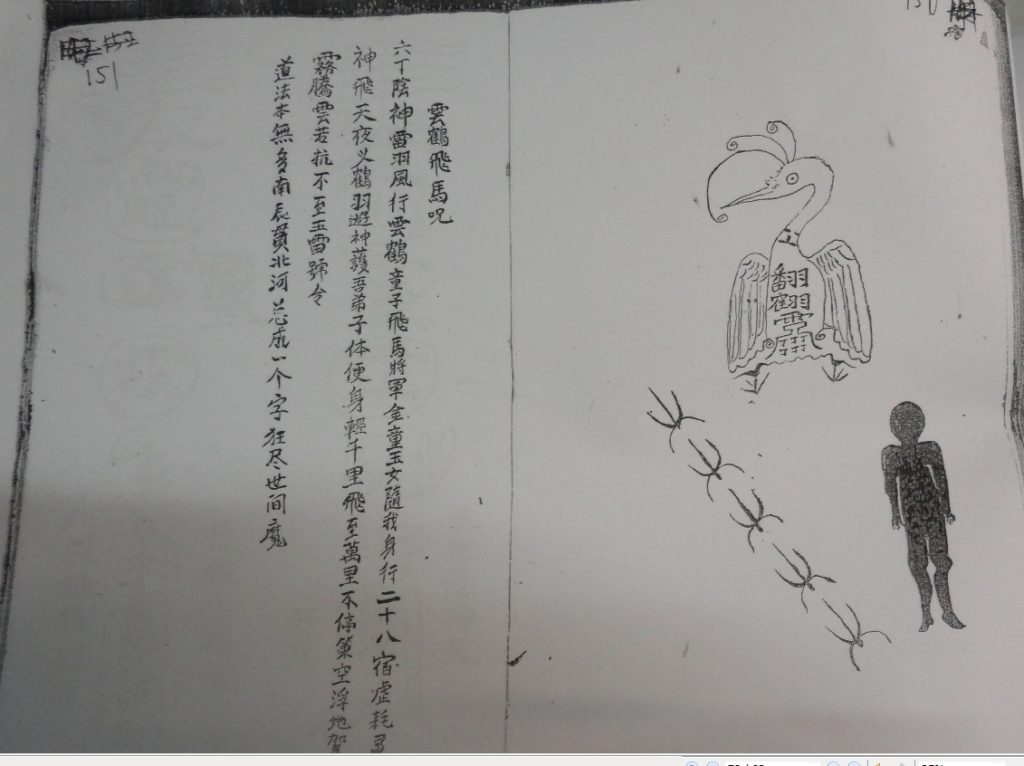 150
雲鶴飛馬呪
六丁陰神雷羽風行雲鶴童子飛馬將軍金童玉女隨我身行二十八宿虛耗
神飛天夜义鶴羽遊神護吾弟子体便身輕千里飛至萬里不停策空浮地駕
霧騰雲若抗不至玉雷號令
道法本無多南辰貫北河总成一个字狂尽世间魔
151